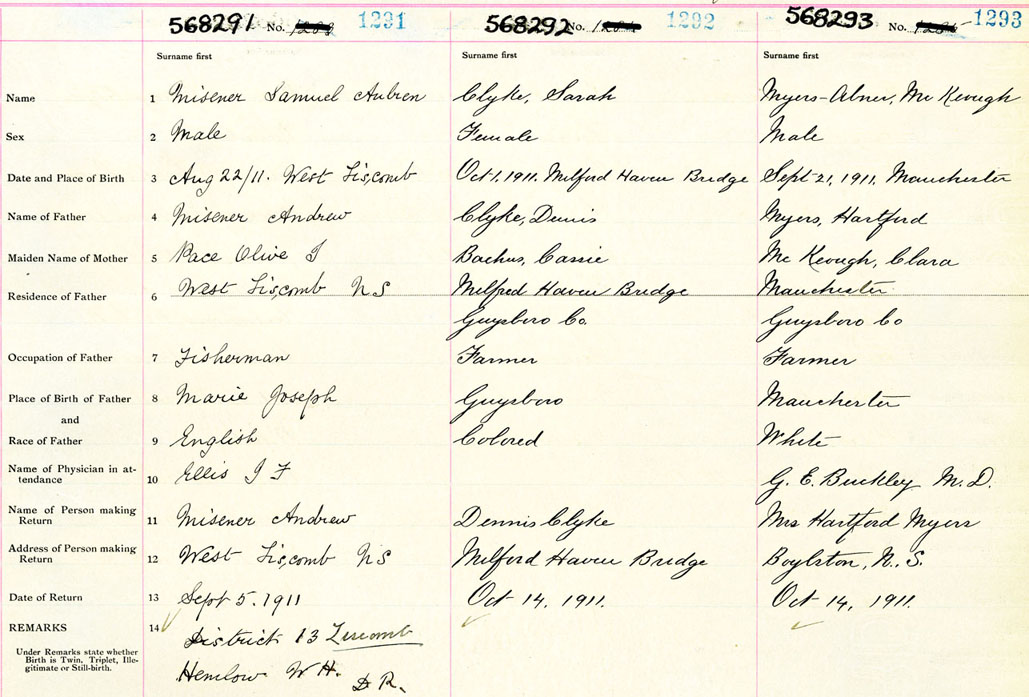 568291 No. 1291
568292 No. 1292
568293 No. 1293
Surname first
Surname first
Surname first
Name 1 Misener Samuel Aubren
Clyke, Sarah
Myers-Abner, Mc Keough
Sex 2 Male
Female
Male
Date and Place of Birth 3 Aug 22/11. West Liscomb
Oct 1, 1911. Milford Haven Bridge
Sept 21, 1911. Manchester
Name of Father 4 Misener Andrew
Clyke, Dennis
Myers, Hartford
Maiden Name of Mother 5 Pace Olive J
Bachus, Cassie
Mc Keough, Clara
Residence of Father 6 West Liscomb NS
Milfred Haven Bridge
Manchester
Guysboro Co.
Guysboro Co
Occupation of Father 7 Fisherman
Farmer
Farmer
Place of Birth of Father 8 Marie Joseph
Guysboro
Manchester
and
Race of Father 9 English
Colored
White
Name of Physician in at-
tendance 10 Ellis J F
G. E. Buckley M. D.
Name of Person making
Return 11 Misener Andrew
Dennis Clyke
Mrs Hartford Myers
Address of Person making
Return 12 West Liscomb NS
Milford Haven Bridge
Boylston, N. S.
Date of Return 13 Sept 5. 1911
Oct 14, 1911.
Oct 14, 1911.
REMARKS 14 District 13 Liscomb
Under Remarks state whether
Birth is Twin, Triplet, Ille-
gitimate or Still-birth.
Hemlow W H.
D R.